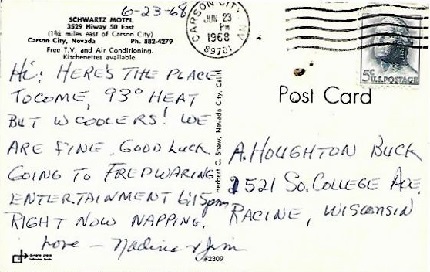 6-23-68
SCHWARTZ MOTEL
3529 Hiway 50 East
(1½ miles east of Carson City)
Carson City, Nevada Ph. 882-4279
Free T.V. and Air Conditioning.
Kitchenettes available
HI! HERE'S THE PLACE
TO COME, 93° HEAT
BUT W COOLERS! WE
ARE FINE. GOOD LUCK.
GOING TO FRED WARING
ENTERTAINMENT 6:15 pm
RIGHT NOW NAPPING.
Love - Nadine & Jim
CARSON CITY
JUN 23
PM
1968
89701
5¢ U.S. POSTAGE
Post Card
A. HOUGHTON BUCK
2521 SO. COLLEGE AVE.
RACINE, WISCONSIN
C. Shaw, Nevada City, Calif.
62309